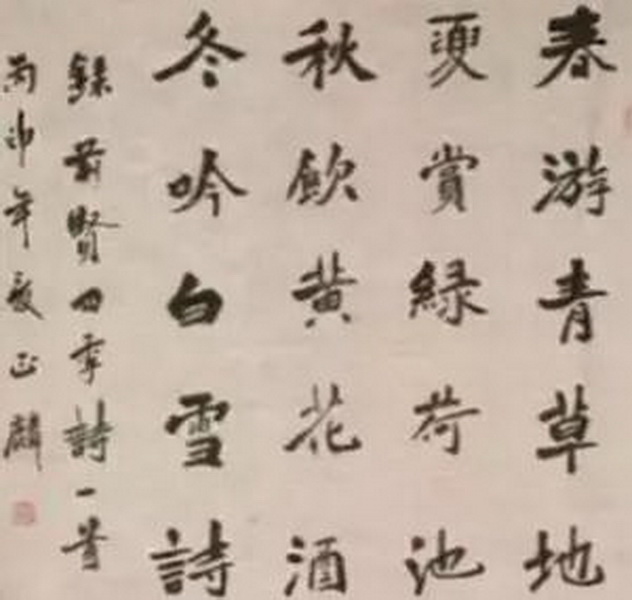 春游青草地
夏賞緑荷池
秋飲黄花酒
冬吟白雪詩
錄前賢四季詩一首
丙申年夏正麟